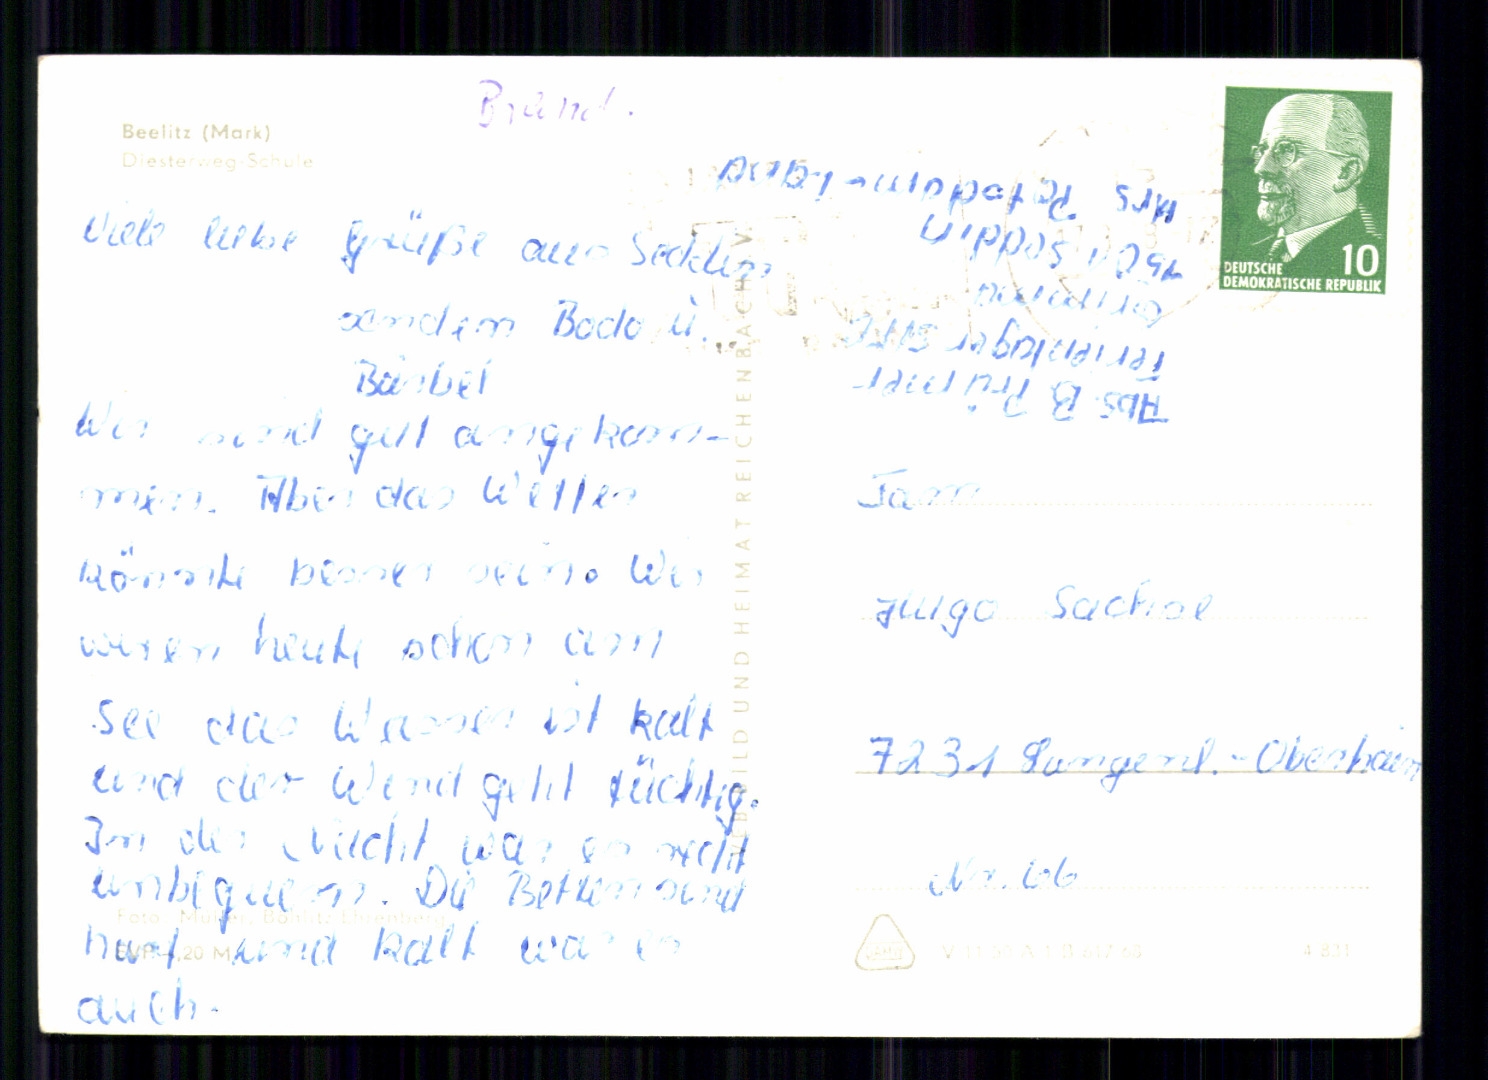 Brand.
Beelitz (Mark)
Diesterweg-Schule
Viele liebe Grüße aus Seddin
senden Bodo u.
Bärbel
Wir sind gut angekom-
men. Aber das Wetter
könnte besser sein. Wir
waren heute schon am
See das Wasser ist kalt
und der Wind geht tüchtig.
In der Nacht war es recht
unbequem. Die Betten sind
hart und kalt war es
auch.
Foto: Müller, Böhlitz-Ehrenberg
,20 M
BILD UND HEIMAT REICHENBACH I. V.
DEUTSCHE
DEMOKRATISCHE REPUBLIK
10
Abs. B.
Ferienlager
1501 Seddin
Krs Potsdam-Land
Fam
Hugo Sachse
7231 Langenl.-Oberhain
Nr. 66
V 11 50 A 1 B
4 831